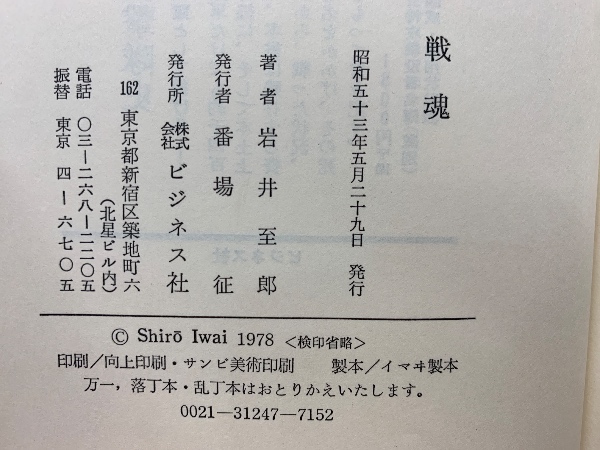 戦魂
昭和五十三年五月二十九日 発行
著者 岩井至郎
発行者 番場征
発行所 株式会社 ビジネス社
162 東京都新宿区築地町六
(北星ビル内)
電話 〇三―二六八―二二〇五
振替 東京 四―六七〇五
© Shirō Iwai 1978 <検印省略>
印刷/向上印刷・サンビ美術印刷 製本/イマヰ製本
万一,落丁本・乱丁本はおとりかえいたします。
0021―31247―7152